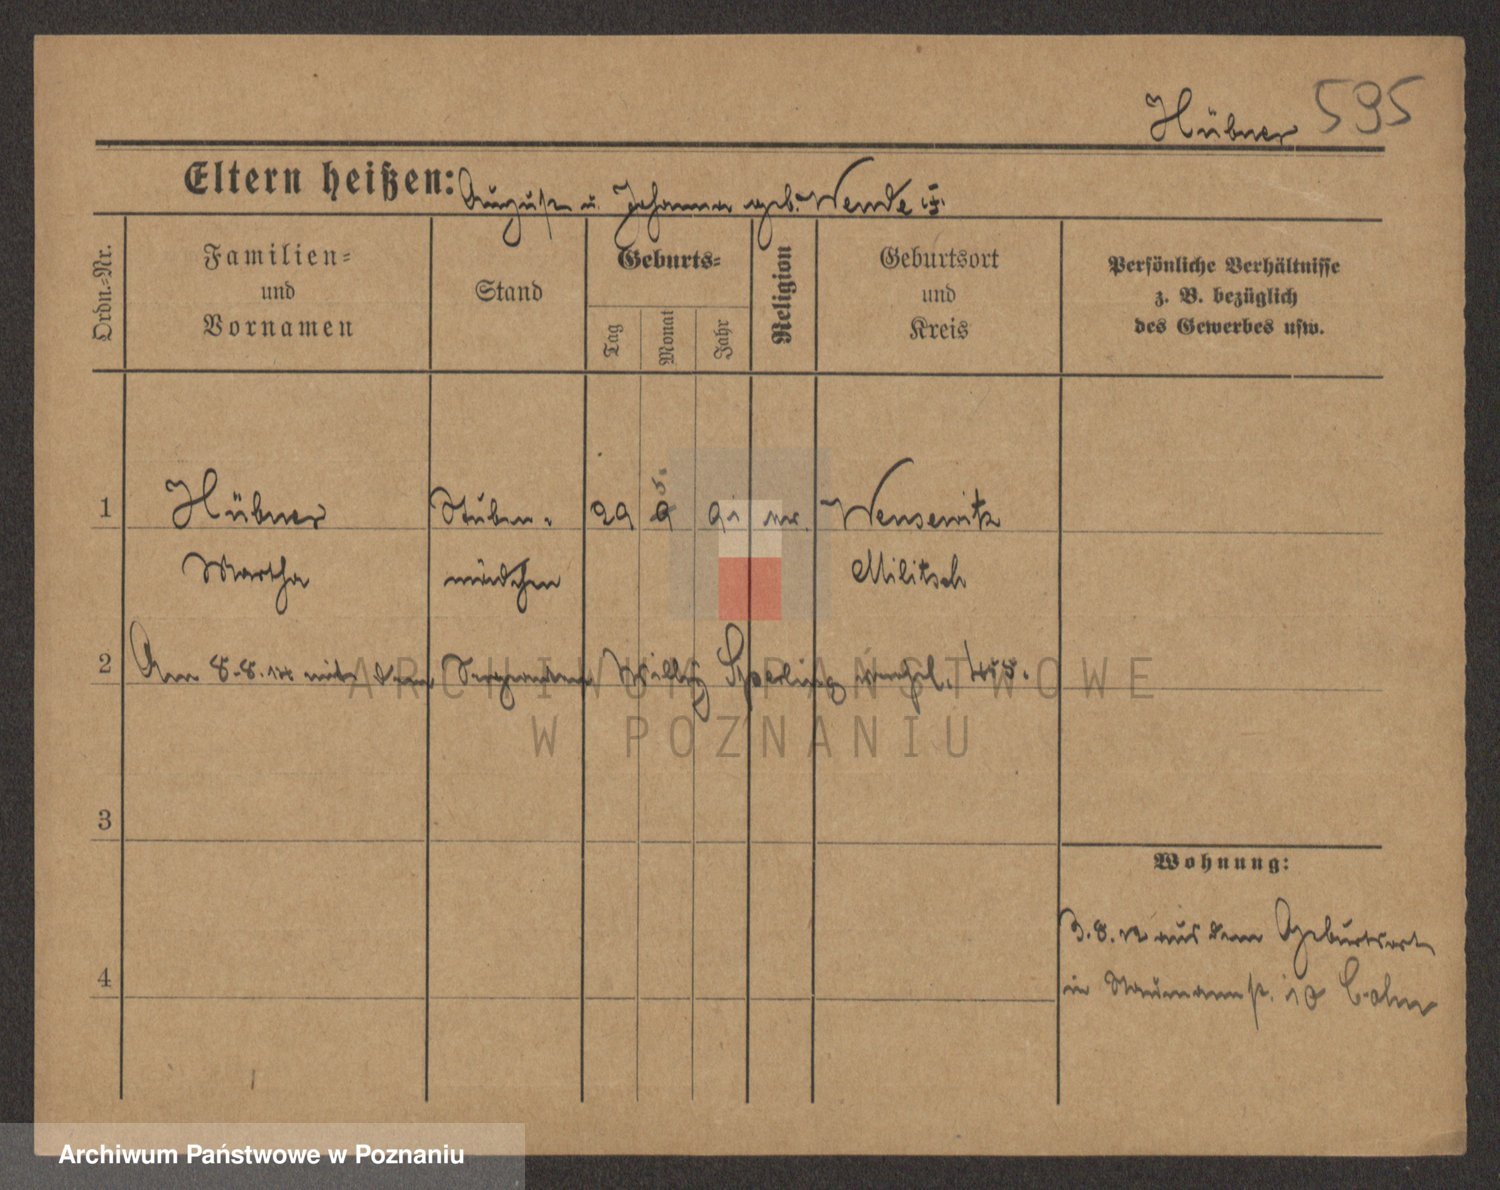 Hübner 595
Eltern heißen: August u. Johanna geb. Wende
Ordn.-Nr.
Familien-
und
Vornamen
Stand
Geburts-
Tag
Monat
Jahr
Religion
Geburtsort
und
Kreis
Persönliche Verhältnisse
z. B. bezüglich
des Gewerbes usw.
5.
1 Hübner Stuben- 29 9 91 Wensewitz
Martha mädchen Militsch
2 Am 8.8. mit dem Sergeanten Willy Sperling verehel.
ARCHIWUM PAŃSTWOWE
W POZNANIU
3
Wohnung:
3.8. aus dem Geburtsort
4
in Naumannst. 10
Archiwum Państwowe w Poznaniu